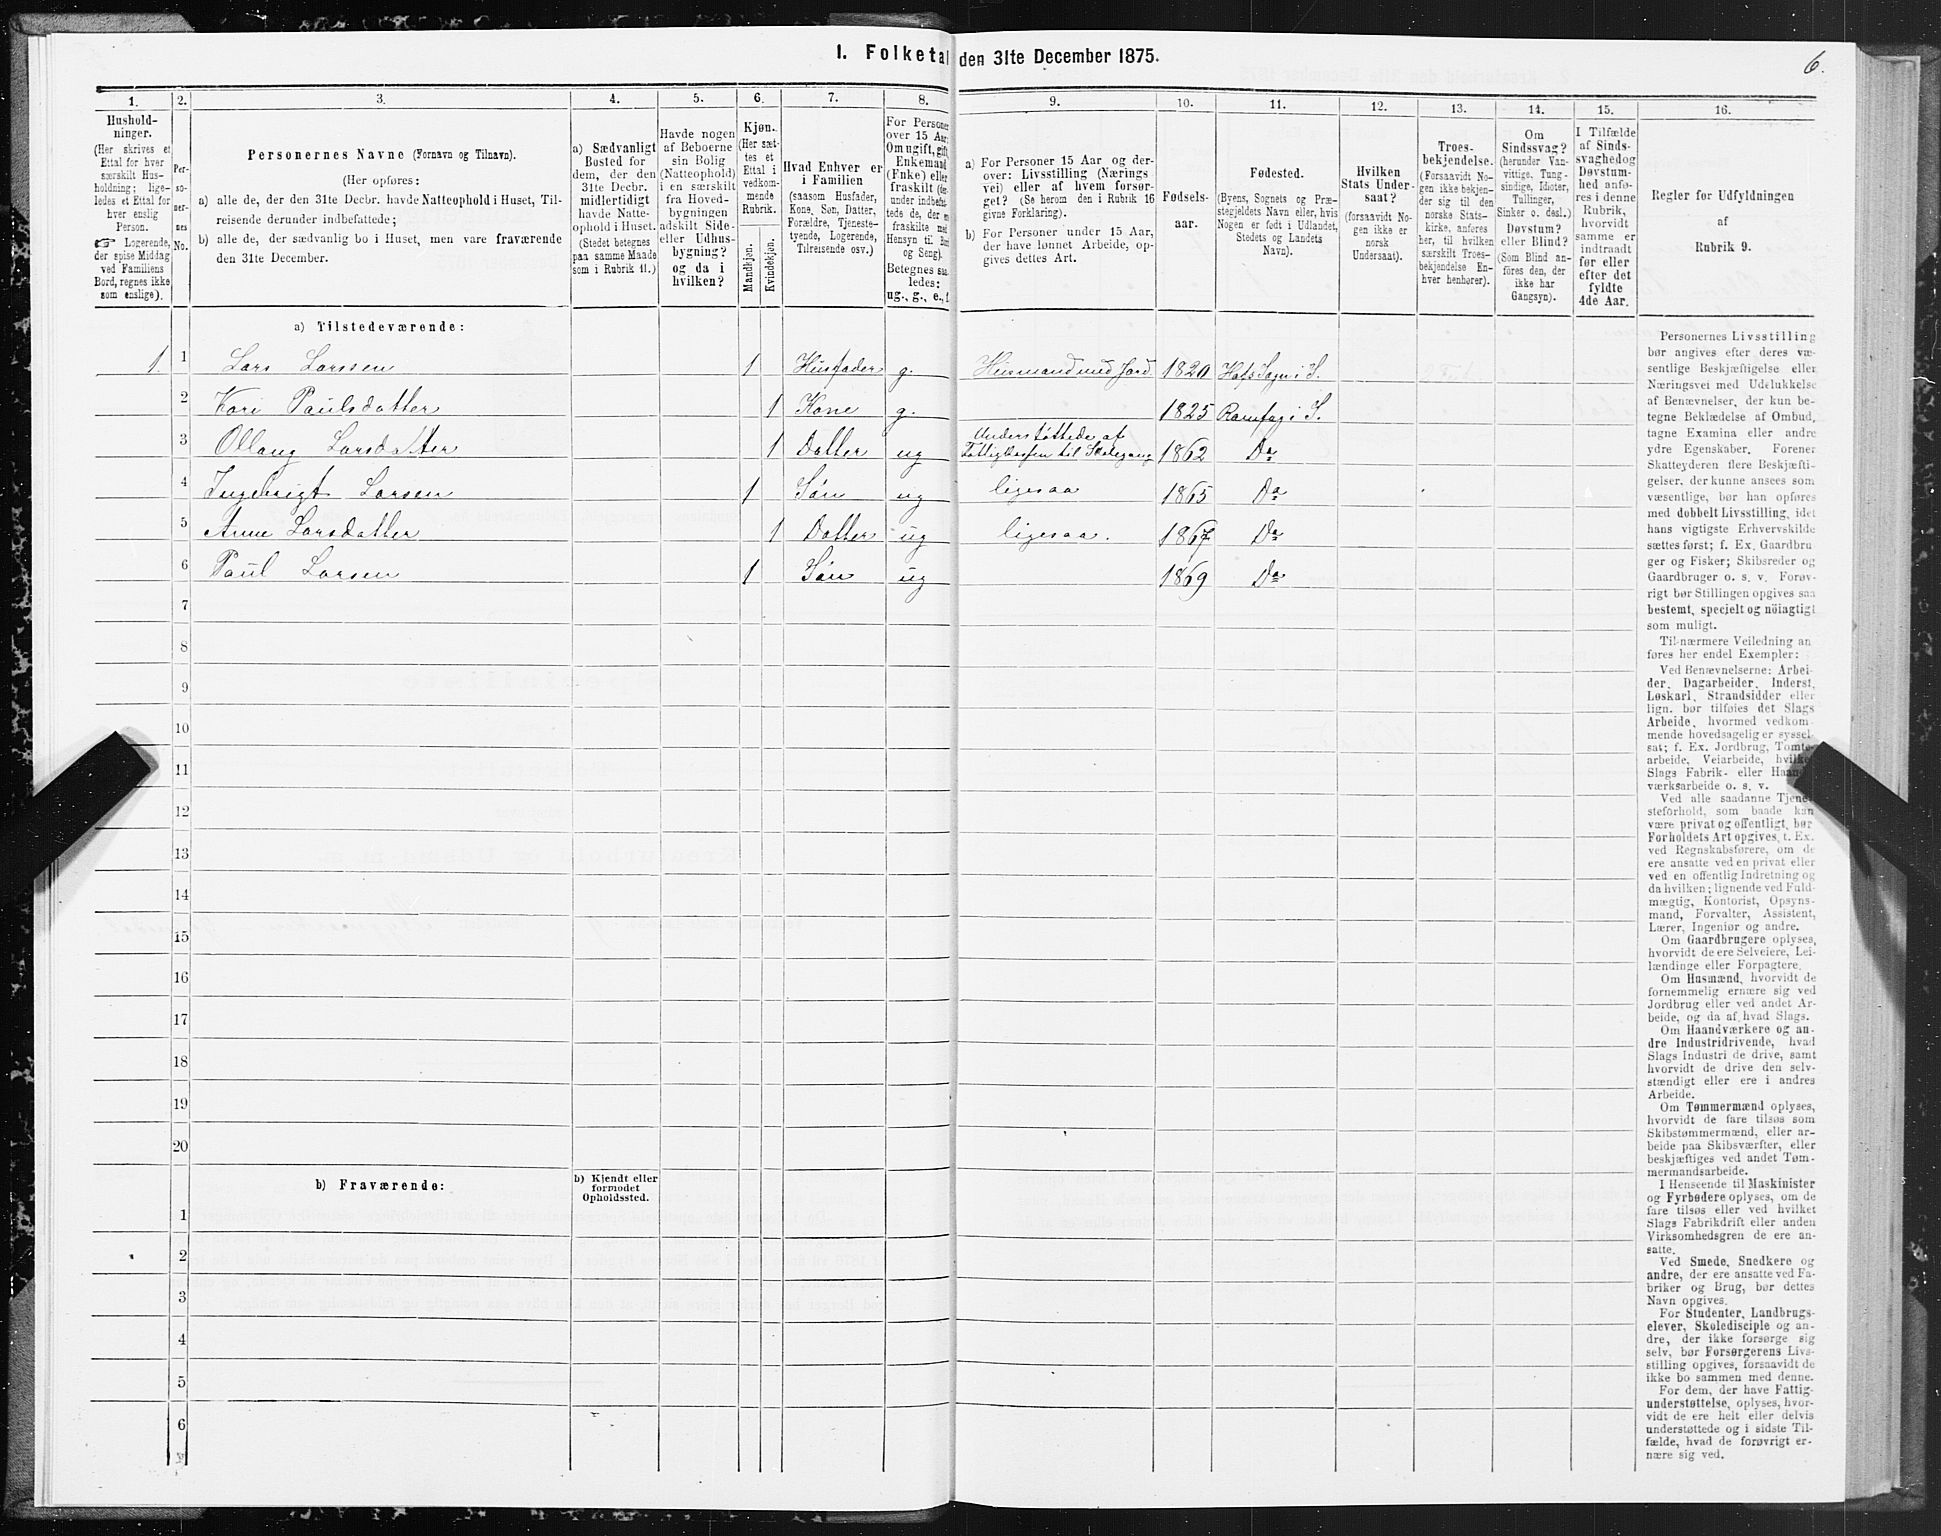 1. Folketal den 31te December 1875.
6.
1.
2.
3.
4.
5.
6.
7.
8.
9.
10.
11.
12.
13.
14.
15.
16.
Hushold-
ninger.
(Her skrives et
Ettal for hver
særskilt Hus-
holdning; lige-
ledes et Ettal for
hver enslig
Person.
☞ Logerende,
der spise Middag
ved Familiens
Bord, regnes ikke
som enslige).
Per-
so-
ner-
nes
No.
Personernes Navne (Fornavn og Tilnavn).
(Her opføres:
a) alle de, der den 31te Decbr. havde Natteophold i Huset, Til-
reisende derunder indbefattede;
b) alle de, der sædvanlig bo i Huset, men vare fraværende
den 31te December.
a) Sædvanligt
Bosted for
dem, der den
31te Decbr.
midlertidigt
havde Natte-
ophold i Huset.
(Stedet betegnes
paa samme Maade
som i Rubrik 11.)
Havde nogen
af Beboerne
sin Bolig
(Natteophold)
i en særskilt
fra Hoved-
bygningen
adskilt Side-
eller Udhus-
bygning?
og da i
hvilken?
Kjøn.
(Her sæt-
tes et
Ettal i
vedkom-
mende
Rubrik.
Mandkjøn.
Kvindekjøn.
Hvad Enhver er
i Familien
(saasom Husfader,
Kone, Søn, Datter,
Forældre, Tjeneste-
tyende, Logerende,
Tilreisende osv.)
For Personer
over 15 Aar:
Om ugift, gift,
Enkemand
(Enke) eller
fraskilt (der-
under indbefat-
tede de, der er
fraskilte med
Hensyn til Bord
og Seng).
Betegnes saa-
ledes:
ug., g., e., f.
a) For Personer 15 Aar og der-
over: Livsstilling (Nærings
vei) eller af hvem forsør-
get? (Se herom den i Rubrik 16
givne Forklaring).
b) For Personer under 15 Aar,
der have lønnet Arbeide, op-
gives dettes Art.
Fødsels-
aar.
Fødested.
(Byens, Sognets og Præ-
stegjeldets Navn eller, hvis
Nogen er født i Udlandet,
Stedets og Landets
Navn).
Hvilken
Stats Under-
saat?
(forsaavidt No-
gen ikke er
norsk
Undersaat).
Troes-
bekjendelse.
(Forsaavidt No-
gen ikke bekjen-
der sig til den
norske Stats-
kirke, anføres
her, til hvilken
særskilt Troes-
bekjendelse En-
hver henhører).
Om
Sindssvag?
(herunder Van-
vittige, Tung-
sindige, Idioter,
Tullinger,
Sinker o. desl.)
Døvstum?
eller Blind?
(Som Blind an-
føres den, der
ikke har
Gangsyn).
I Tilfælde
af Sinds-
svaghed og
Døvstum-
hed anfø-
res i denne
Rubrik,
hvorvidt
samme er
indtraadt
før eller
efter det
fyldte
4de Aar.
Regler for Udfyldningen
af
Rubrik 9.
a) Tilstedeværende:
1. 1 Lars Larssen 1 Husfader g. Husmand med Jord 1820 Hofs Sogn i S.
2 Kari Paulsdatter 1 Kone g. 1825
3 Ollaug Larsdatter 1 Datter ug Understøttede af
Fattigkassen til Skolegang 1862 Do
4 Ingebrigt Larsen 1 Søn ug ligesaa 1865 Do
5 Anne Larsdatter 1 Datter ug ligesaa. 1867 Do
6 Paul Larsen 1 Søn ug 1869 Do
7
8
9
10
11
12
13
14
15
16
17
18
19
20
b) Fraværende:
b) Kjendt eller
formodet
Opholdssted.
1
2
3
4
5
6
Personernes Livsstilling
bør angives efter deres væ-
sentlige Beskjæftigelse eller
Næringsvei med Udelukkelse
af Benævnelser, der kun be-
tegne Beklædelse af Ombud,
tagne Examina eller andre
ydre Egenskaber. Forener
Skatteyderen flere Beskjæfti-
gelser, der kunne ansees som
væsentlige, bør han opføres
med dobbelt Livsstilling, idet
hans vigtigste Erhvervskilde
sættes først; f. Ex. Gaardbru
ger og Fisker; Skibsreder og
Gaardbruger o. s. v. Forøv-
rigt bør Stillingen opgives saa
bestemt, specielt og nöiagtigt
som muligt.
Til nærmere Veiledning an
føres her endel Exempler:
Ved Benævnelserne: Arbei-
der, Dagarbeider, Inderst,
Løskarl, Strandsidder eller
lign. bør tilføies det Slags
Arbeide, hvormed vedkom-
mende hovedsagelig er syssel-
sat; f. Ex. Jordbrug, Tomte-
arbeide, Veiarbeide, hvilket
Slags Fabrik- eller Haand-
værksarbeide o. s. v.
Ved alle saadanne Tjene-
steforhold, som baade kan
være privat og offentligt, bør
Forholdets Art opgives, t. Ex.
ved Regnskabsførere, om de
ere ansatte ved en privat eller
ved en offentlig Indretning og
da hvilken; lignende ved Fuld-
mægtig, Kontorist, Opsyns-
mand, Forvalter, Assistent,
Lærer, Ingeniør og andre.
Om Gaardbrugere oplyses,
hvorvidt de ere Selveiere, Lei-
lændinge eller Forpagtere.
Om Husmænd, hvorvidt de
fornemmelig ernære sig ved
Jordbrug eller ved andet Ar-
beide, og da af hvad Slags.
Om Haandværkere og an-
dre Industridrivende, hvad
Slags Industri de drive, samt
hvorvidt de drive den selv-
stændigt eller ere i andres
Arbeide.
Om Tømmermænd oplyses,
hvorvidt de fare tilsøs som
Skibstømmermænd, eller ar-
beide paa Skibsværfter, eller
beskjæftiges ved andet Tøm-
mermandsarbeide.
I Henseende til Maskinister
og Fyrbødere oplyses, om de
fare tilsøs eller ved hvilket
Slags Fabrikdrift eller anden
Virksomhedsgren de ere an-
satte.
Ved Smede, Snedkere og
andre, der ere ansatte ved Fa-
briker og Brug, bør dettes
Navn opgives.
For Studenter, Landbrugs-
elever, Skoledisciple og an-
dre, der ikke forsørge sig
selv, bør Forsørgerens Livs-
stilling opgives, forsaavidt de
ikke bo sammen med denne.
For dem, der have Fattig-
understøttelse, oplyses, hvor-
vidt de ere helt eller delvis
understøttede og i sidste Til-
fælde, hvad de forøvrigt er-
nære sig ved.